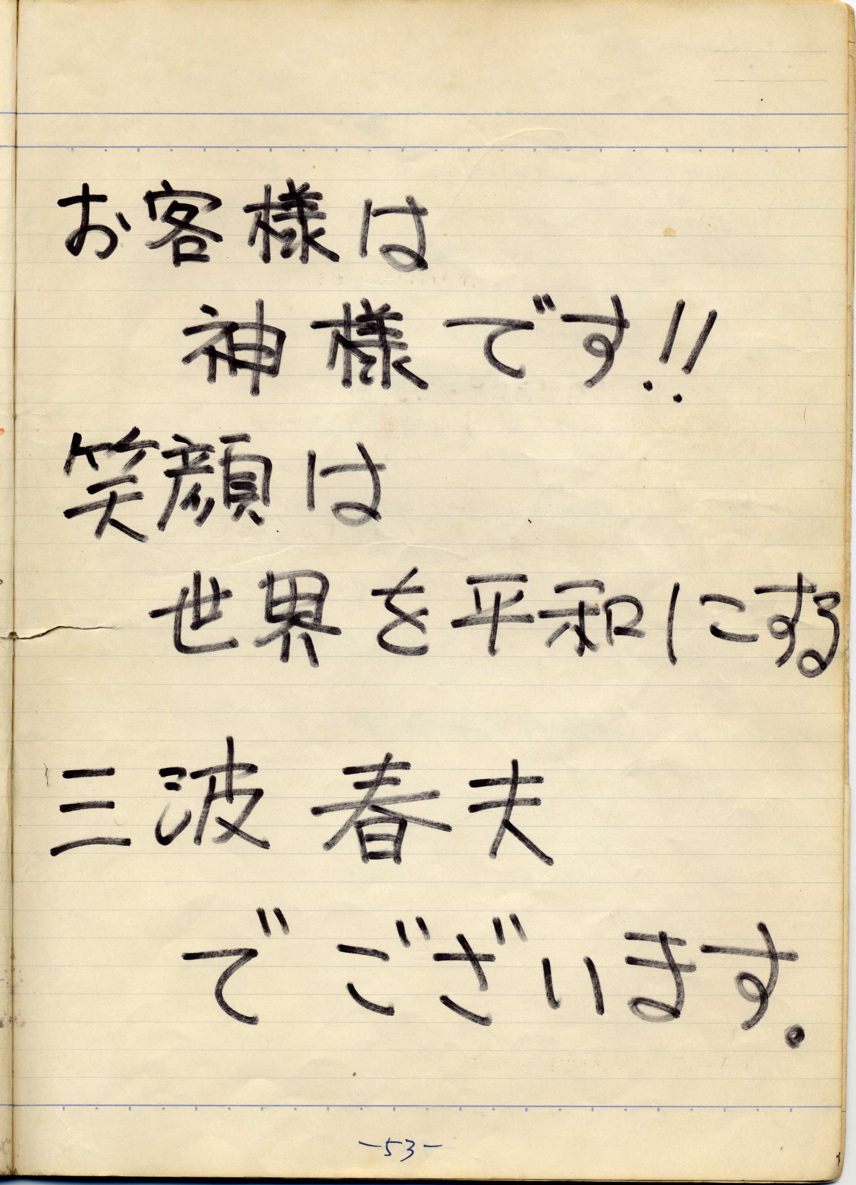 お客様は
神様です!!
笑顔は
世界を平和にする
三波春夫
でございます.
-53-